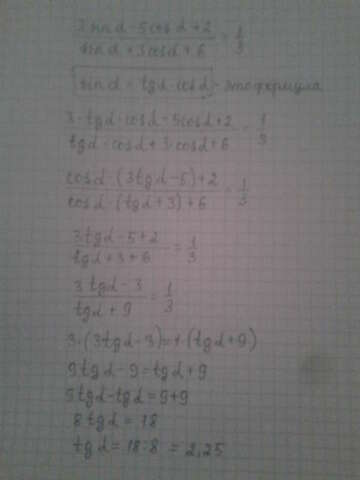 3 sin α - 5 cos α + 2 / sin α + 3 cos α + 6 = 1/3
sin α = tg α · cos α - это формула
3 · tg α · cos α - 5 cos α + 2 / tg α · cos α + 3 · cos α + 6 = 1/3
cos α · (3 tg α - 5) + 2 / cos α · (tg α + 3) + 6 = 1/3
3 tg α - 5 + 2 / tg α + 3 + 6 = 1/3
3 tg α - 3 / tg α + 9 = 1/3
3 · (3 tg α - 3) = 1 · (tg α + 9)
9 tg α - 9 = tg α + 9
9 tg α - tg α = 9 + 9
8 tg α = 18
tg α = 18 : 8 = 2,25